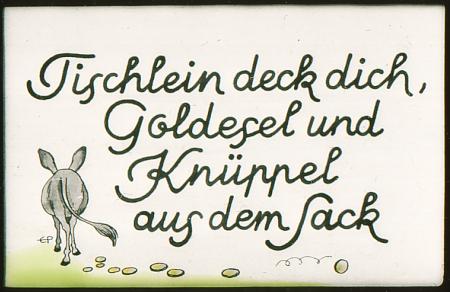 Tischlein deck dich,
Goldesel und
Knüppel
aus dem Sack
EP